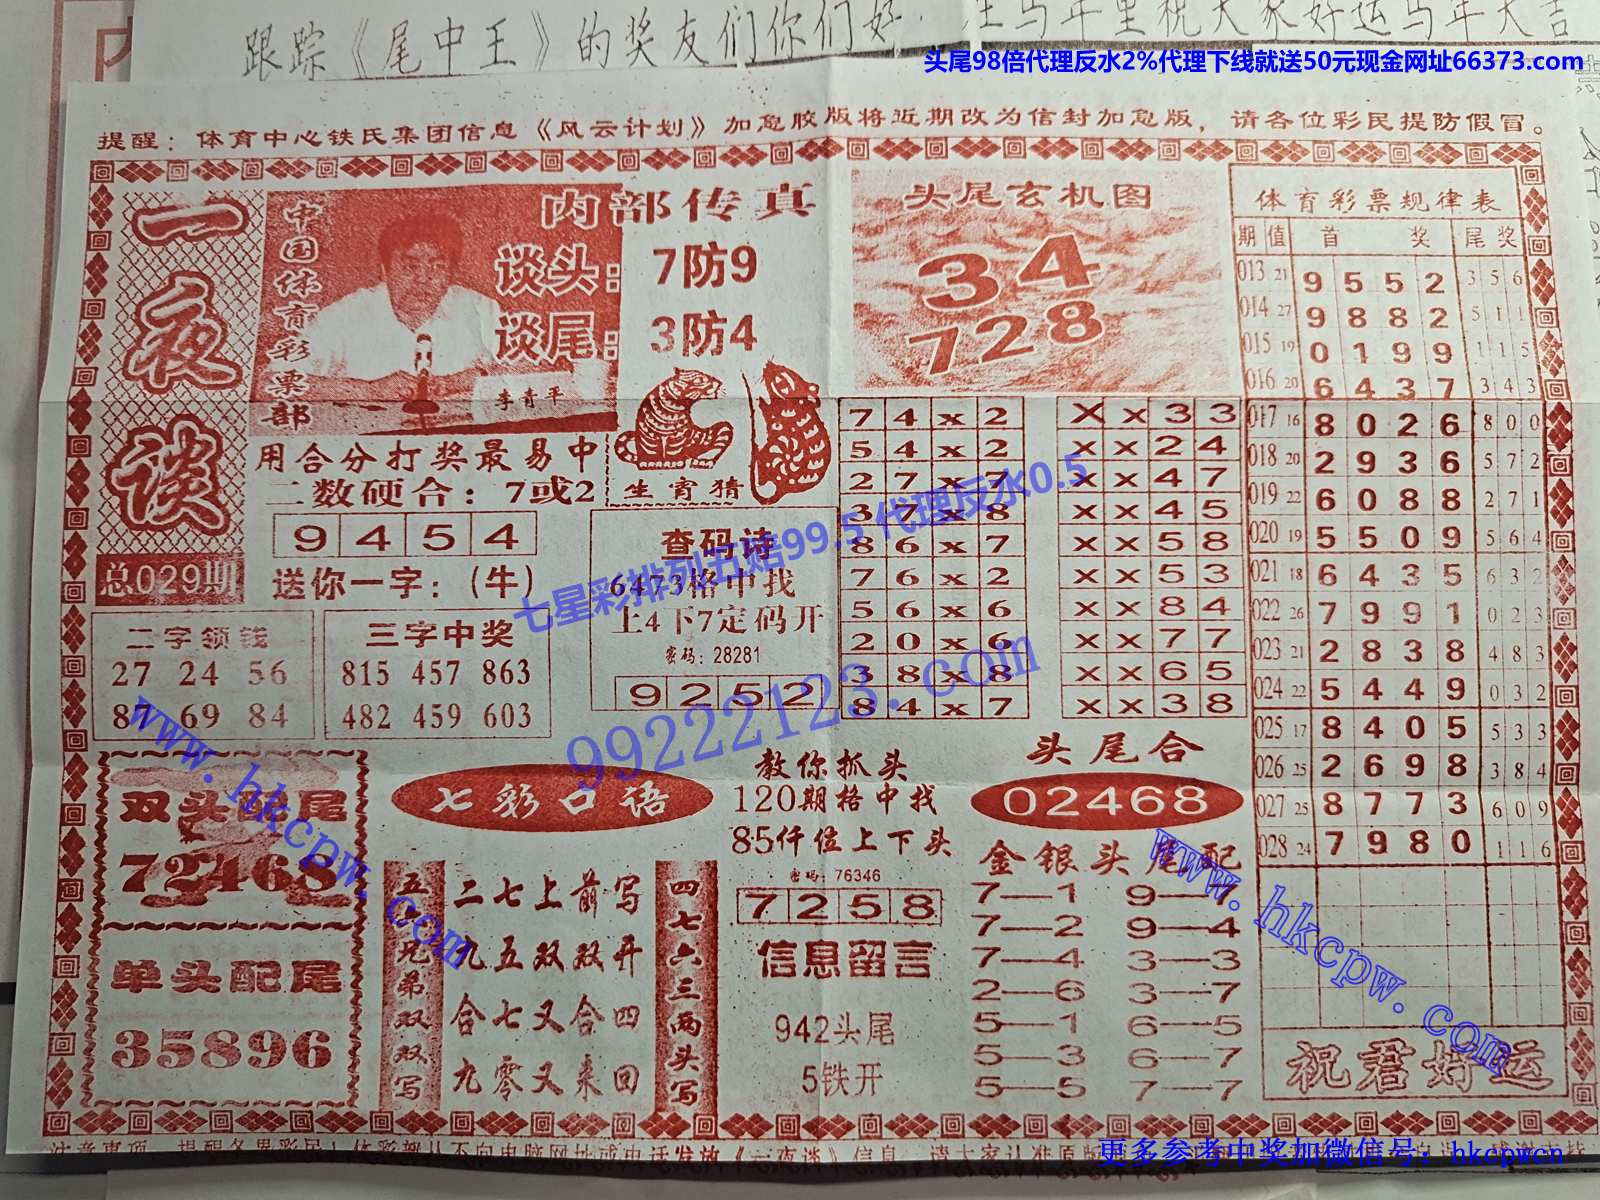 跟踪《尾中王》的奖友们你们好.
头尾98倍代理反水2%代理下线就送50元现金网址66373.com
提醒：体育中心铁氏集团信息《风云计划》加急胶版将近期改为信封加急版，请各位彩民提防假冒。
一夜谈
总029期
中国体育彩票部
内部传真
谈头：7防9
谈尾：3防4
李青平
头尾玄机图
34
728
用合分打奖最易中
二数硬合：7或2
9 4 5 4
送你一字：(牛)
生宵猜
查码诗
6473格中找
上4下7定码开
密码：28281
9 2 5 2
二字领钱
27 24 56
87 69 84
三字中奖
815 457 863
482 459 603
7 4 x 2
5 4 x 2
2 7 x 7
3 7 x 8
8 6 x 7
7 6 x 2
5 6 x 6
2 0 x 6
3 8 x 8
8 4 x 7
X x 3 3
x x 2 4
x x 4 7
x x 4 5
x x 5 8
x x 5 3
x x 8 4
x x 7 7
x x 6 5
x x 3 8
体育彩票规律表
期 值 首 奖 尾 奖
013 21 9 5 5 2 3 5 6
014 27 9 8 8 2 5 1 1
015 19 0 1 9 9 1 1 5
016 20 6 4 3 7 3 4 3
017 16 8 0 2 6 8 0 0
018 20 2 9 3 6 5 7 2
019 22 6 0 8 8 2 7 1
020 19 5 5 0 9 5 6 4
021 18 6 4 3 5 6 3 2
022 26 7 9 9 1 0 2 3
023 21 2 8 3 8 4 8 3
024 22 5 4 4 9 0 3 2
025 17 8 4 0 5 5 3 3
026 25 2 6 9 8 3 8 4
027 25 8 7 7 3 6 0 9
028 24 7 9 8 0 1 1 6
祝君好运
双头配尾
72468
单头配尾
35896
七彩口语
二七上前写
九五双双开
合七又合四
九零又来回
四七六三两头写
教你抓头
120期格中找
85仟位上下头
密码：76346
7 2 5 8
信息留言
942头尾
5铁开
头尾合
02468
金银头尾配
7—1 9—7
7—2 9—4
7—4 3—3
2—6 3—7
5—1 6—5
5—3 6—7
5—5 7—7
七星彩排列五赔99.5 代理反水0.5
99222123.com
www.hkcpw.com
www.hkcpw.com
更多参考中奖加微信号：hkcpwcn